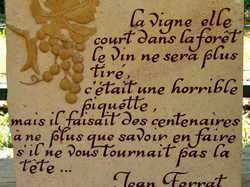 la vigne elle
court dans la forêt
le vin ne sera plus
tiré,
c'était une horrible
piquette,
mais il faisait des centenaires
à ne plus que savoir en faire
s'il ne vous tournait pas la
tête ...
Jean Ferrat